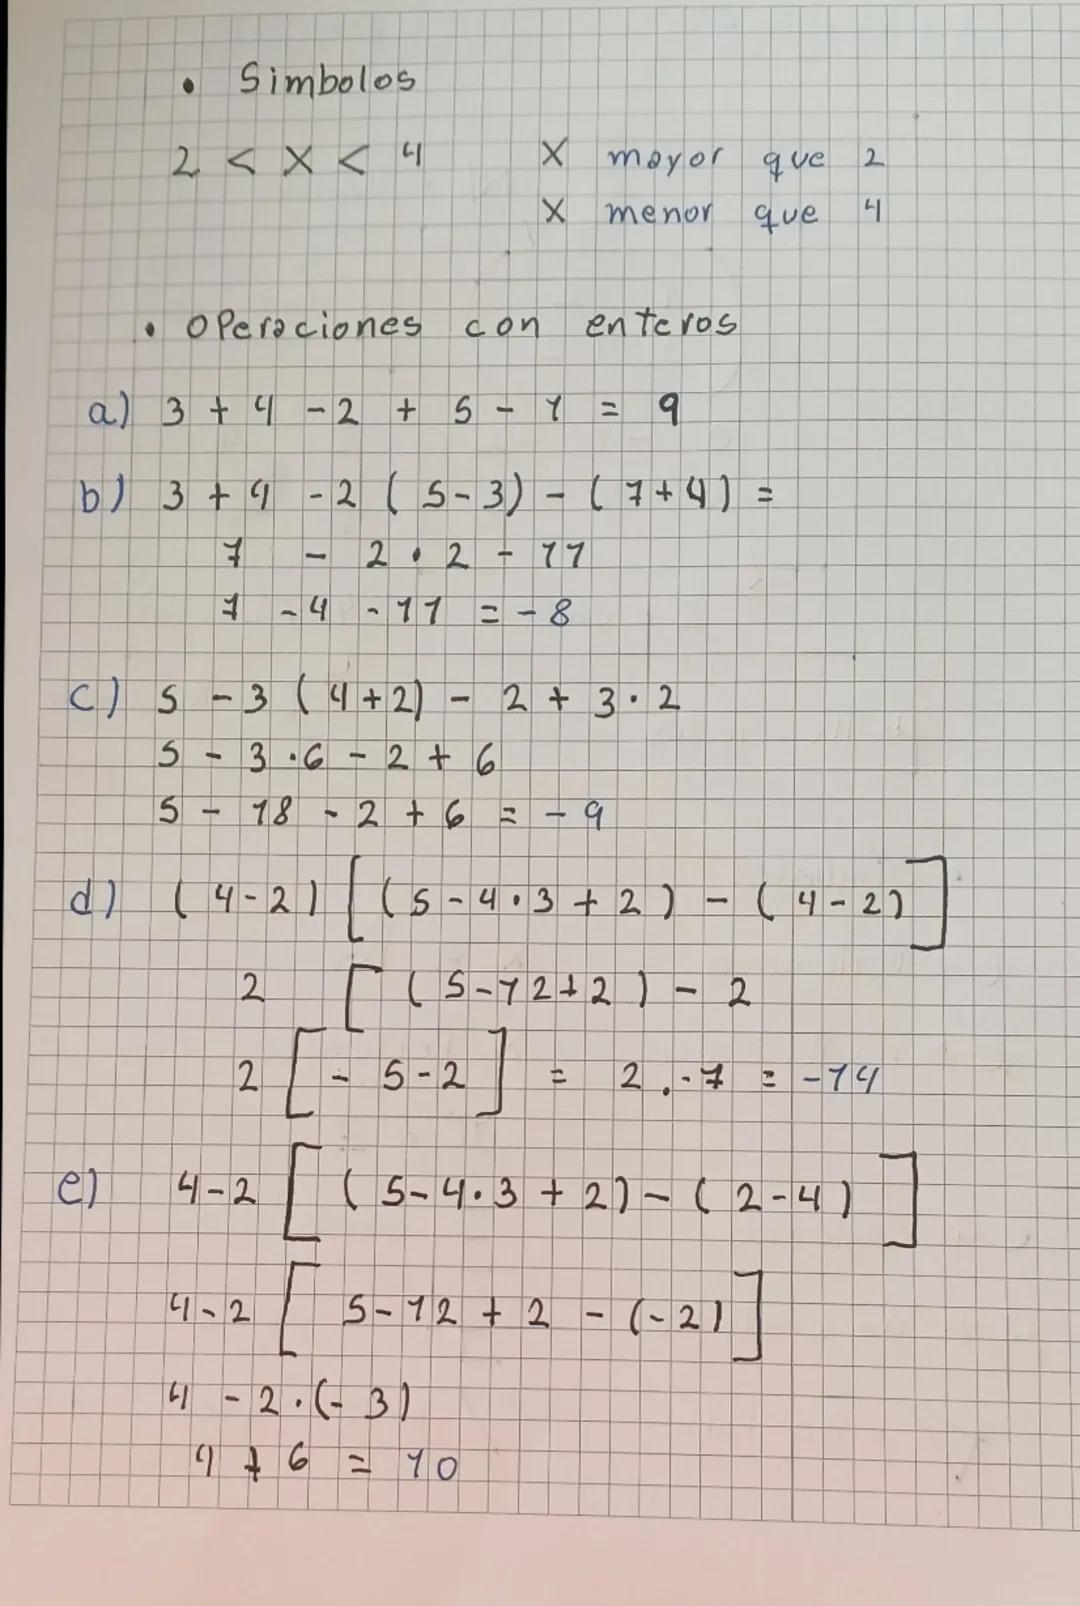 • Simbolos
2 < x < 4 x mayor que 2
x menor que 4
• Operaciones con enteros
a) 3 + 4 - 2 + 5 - 1 = 9
b) 3 + 4 - 2 ( 5 - 3 ) - ( 7 + 4 ) =
7 - 2 • 2 - 11
7 - 4 - 11 = - 8
c) 5 - 3 ( 4 + 2 ) - 2 + 3 · 2
5 - 3 · 6 - 2 + 6
5 - 18 - 2 + 6 = - 9
d) ( 4 - 2 ) [ ( 5 - 4 • 3 + 2 ) - ( 4 - 2 ) ]
2 [ ( 5 - 12 + 2 ) - 2
2 [ - 5 - 2 ] = 2 . - 7 = - 14
e) 4 - 2 [ ( 5 - 4 · 3 + 2 ) - ( 2 - 4 ) ]
4 - 2 [ 5 - 12 + 2 - ( - 2 ) ]
4 - 2 · ( - 3 )
4 + 6 = 10